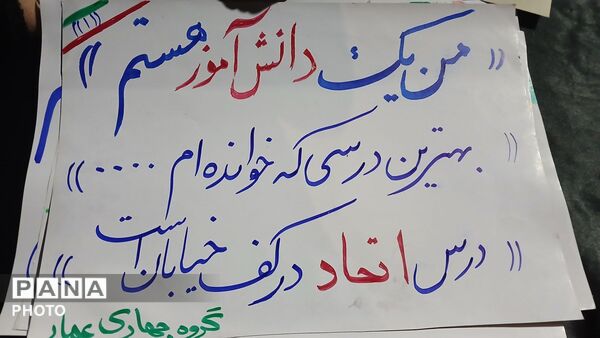 ((۱))
« من یک دانش آموز هستم »
« بهترین درسی که خوانده ام .... »
« درس اتحاد در کف خیابان است »
گروه جهادی عمار
PANA
PHOTO